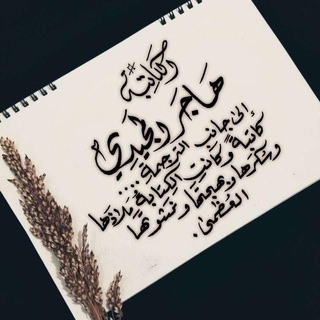 #الكاتبة
هاجر الجيدي
إلى جانب الترجمة ....
كاتبة وكانت الكتابة ملاذها
وسكرها وهمهما ونشوتها
العظمى.